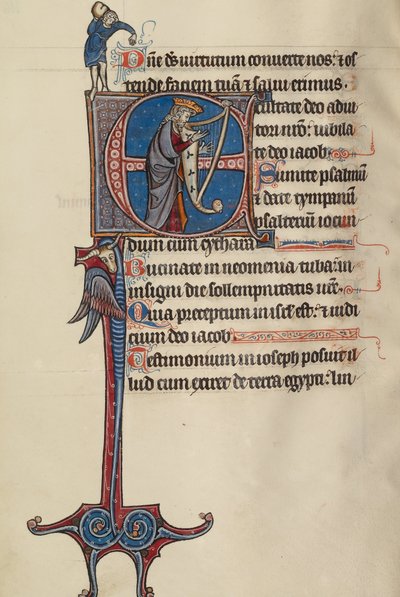 Dñe d̄s uirtutum conuerte nos: & os
tende faciem tuā & salui erimus.
Exultate deo adiu
tori nr̄o: iubila
te deo iacob
Sumite psalmū
& date tympanū
psalteriū iocun
dum cum cythara
Bucinate in neomenia tuba: in
insigni die sollempnitatis ur̄e.
Quia preceptum in isrl̄ est: & iudi
cium deo iacob
Testimonium in ioseph posuit il
lud cum exiret de terra egypti: lin